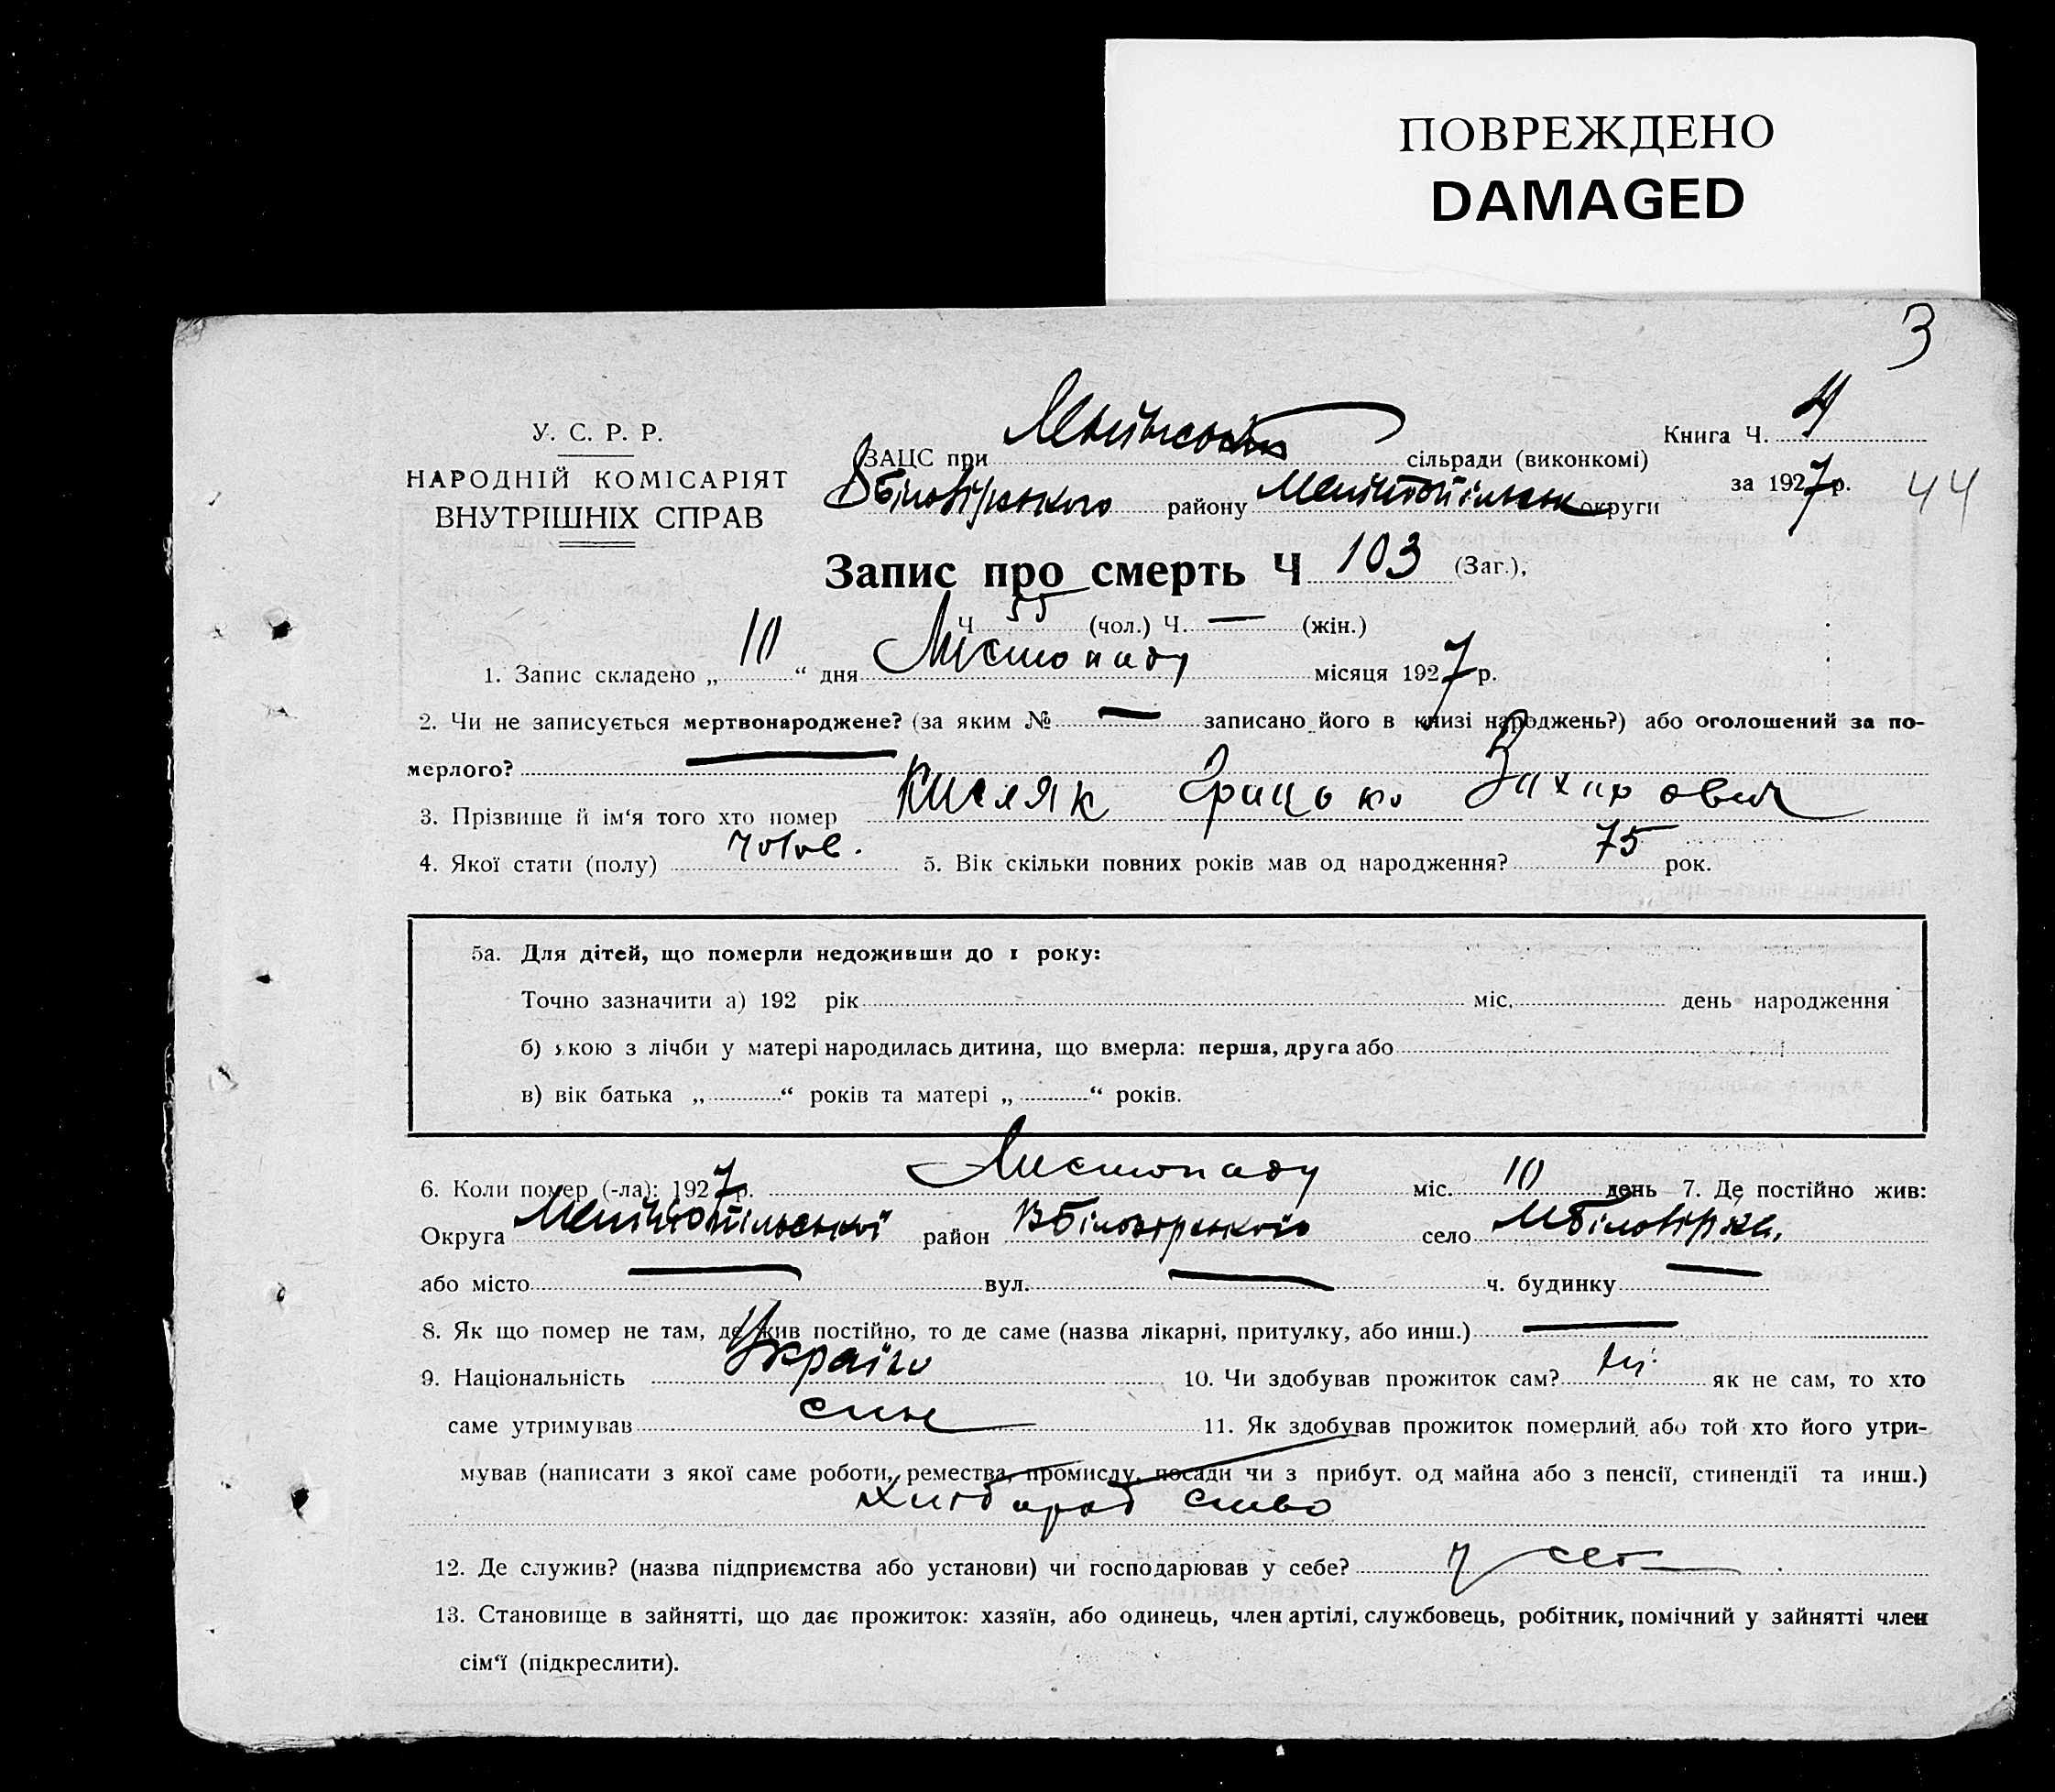 ПОВРЕЖДЕНО
DAMAGED
3
У. С. Р. Р.
НАРОДНІЙ КОМІСАРІЯТ
ВНУТРІШНІХ СПРАВ
ЗАЦС при сільради (виконкомі)
ВБіловірського району Мелітопільськ округи
Книга Ч. 4
за 1927 р. 44
Запис про смерть Ч 103 (Заг.),
Ч 55 (чол.) Ч. — (жін.)
1. Запис складено „ 10 “ дня Листопаду місяця 1927 р.
2. Чи не записується мертвонароджене? (за яким № — записано його в книзі народжень?) або оголошений за по-
мерлого? —
3. Прізвище й ім‘я того хто помер Кисляк Грицько Захарович
4. Якої стати (полу) чолов. 5. Вік скільки повних років мав од народження? 75 рок.
5а. Для дітей, що померли недоживши до 1 року:
Точно зазначити а) 192 рік міс. день народження
б) якою з лічби у матері народилась дитина, що вмерла: перша, друга або
в) вік батька „ “ років та матері „ “ років.
6. Коли помер (-ла): 1927 р. Листопаду міс. 10 день 7. Де постійно жив:
Округа Мелітопільської район ВБіловірського село МБіловірка,
або місто — вул. — ч. будинку —
8. Як що помер не там, де жив постійно, то де саме (назва лікарні, притулку, або инш.) —
9. Національність Україн 10. Чи здобував прожиток сам? ні як не сам, то хто
саме утримував син 11. Як здобував прожиток померлий або той хто його утри-
мував (написати з якої саме роботи, ремества, промислу, посади чи з прибут. од майна або з пенсії, стипендії та инш.)
Хлібаробство
12. Де служив? (назва підприємства або установи) чи господарював у себе? у себе
13. Становище в зайнятті, що дає прожиток: хазяїн, або одинець, член артілі, службовець, робітник, помічний у зайнятті член
сім‘ї (підкреслити).